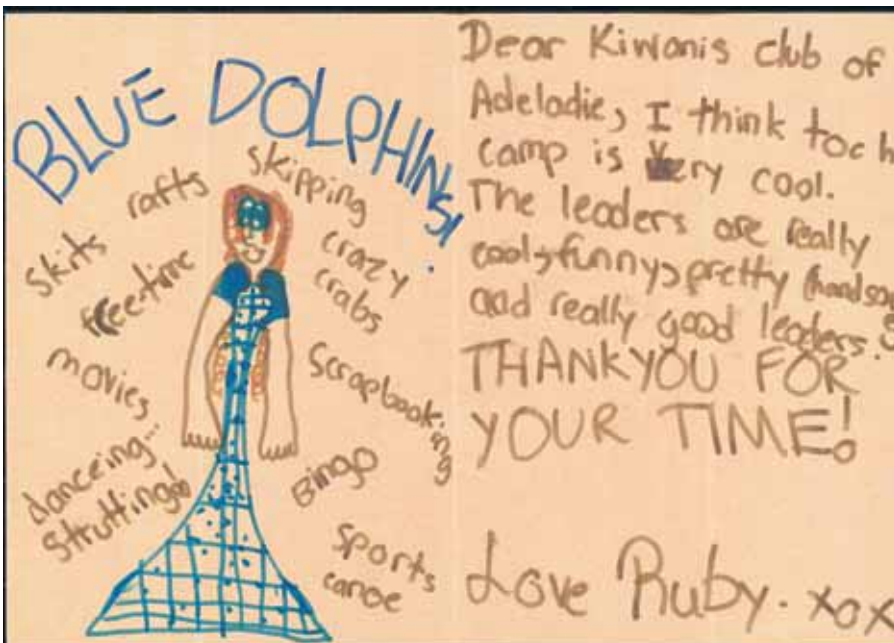 BLUE DOLPHINS!
skipping
rafts
skits
crazy
crabs
free-time
movies
Scrapbooking
danceing...
Strutting!
Bingo
Sports
canoe
Dear Kiwanis club of
Adeladie, I think toc h
camp is very cool.
The leaders are really
cool, funny, pretty
and really good leaders.
THANKYOU FOR
YOUR TIME!
Love Ruby. xox